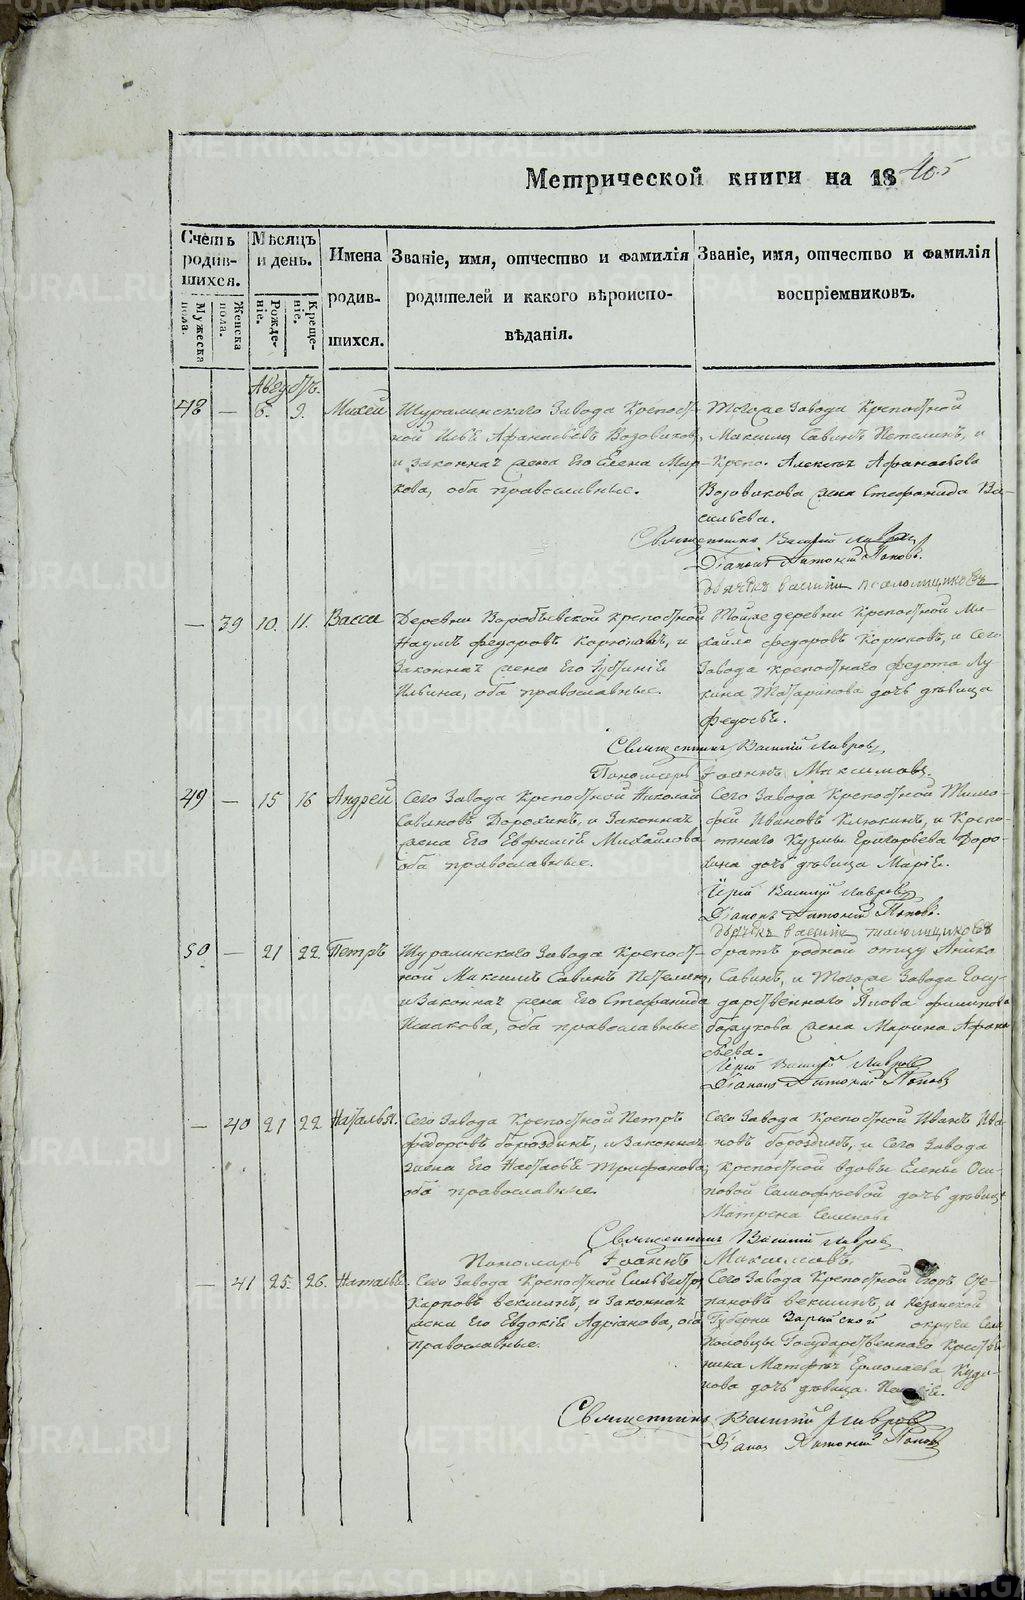 Метрической книги на 1840
Счетъ родив-шихся.
Мужеска пола.
Женска пола.
Мѣсяцъ и день.
Рожде-ніе.
Креще-ніе.
Имена родив-шихся.
Званіе, имя, отчество и фамилія
родителей и какого вѣроиспо-
вѣданія.
Званіе, имя, отчество и фамилія
воспріемниковъ.
Августъ.
48 — 6. 9. Михей
Шуралинскаго Завода Крепост-
ной Афанасьевъ Возовиковъ,
и законная жена Его Елена Мар-
кова, оба православные.
Тогоже Завода Крепостной
Максимъ Савинъ Петелинъ, и
Крепо. Алексея Афанасьева
Возовикова жена Стефанида Ва-
сильева.
Священникъ Василій Лавровъ
Діаконъ Антоній Поповъ.
дьячекъ василій псаломщиковъ
— 39 10. 11. Васса
Деревни Воробьевской крепостной
Наумъ федоровъ Корюковъ, и
Законная жена Его Устинія
Ильина, оба православные.
Тойже деревни Крепостной Ми-
хайло федоровъ Корюковъ, и Сего
Завода крепостнаго федота Лу-
кина Татаринова дочь девица
Федосья.
Священникъ Василій Лавровъ
Пономарь Іоаннъ Максимовъ.
49 — 15 16 Андрей
Сего Завода Крепостной Николай
Савиновъ Дорохинъ, и Законная
жена Его Евфимія Михайлова
оба православные.
Сего Завода Крепостной Тимо-
фей Ивановъ Клюкинъ, и Крепо-
стнаго Кузмы Григорьева Доро-
хина дочь девица Марія.
Іерей Василій Лавровъ
Діаконъ Антоній Поповъ.
дьячекъ василій псаломщиковъ
50 — 21 22 Петръ
Шуралинскаго Завода Крепост-
ной Максимъ Савинъ Петелинъ,
и Законная жена Его Стефанида
Исакова, оба православные
братъ родной отцу
Савинъ, и Тогоже Завода Госу-
дарственнаго филипова
жена Марина Афана-
сьева.
Іерей Василій Лавровъ
Діаконъ Антоній Поповъ
— 40 21 22 Наталья.
Сего Завода Крепостной Петръ
федоровъ бороздинъ, и Законная
жена Его Настасья Трифанова,
оба православные.
Сего Завода Крепостной Иванъ Ива-
новъ бороздинъ, и Сего Завода
крепостной вдовы Елены Оси-
повой дочь девица
Матрена Семенова
Священникъ Василій Лавровъ
Пономарь Іоаннъ Максимовъ.
— 41 25. 26. Наталья
Сего Завода Крепостной Сильвестръ
Карповъ векшинъ, и Законная
жена Его Евдокія Адріанова, оба
православные.
Сего Завода Крепостной Егоръ Сте-
пановъ векшинъ, и Казанской
Губерни округи Села
Государственнаго Крестья-
нина Матфея Ермолаева
дочь девица
Священникъ Василій Лавровъ
Діаконъ Антоній Поповъ
METRIKI.GASO-URAL.RU